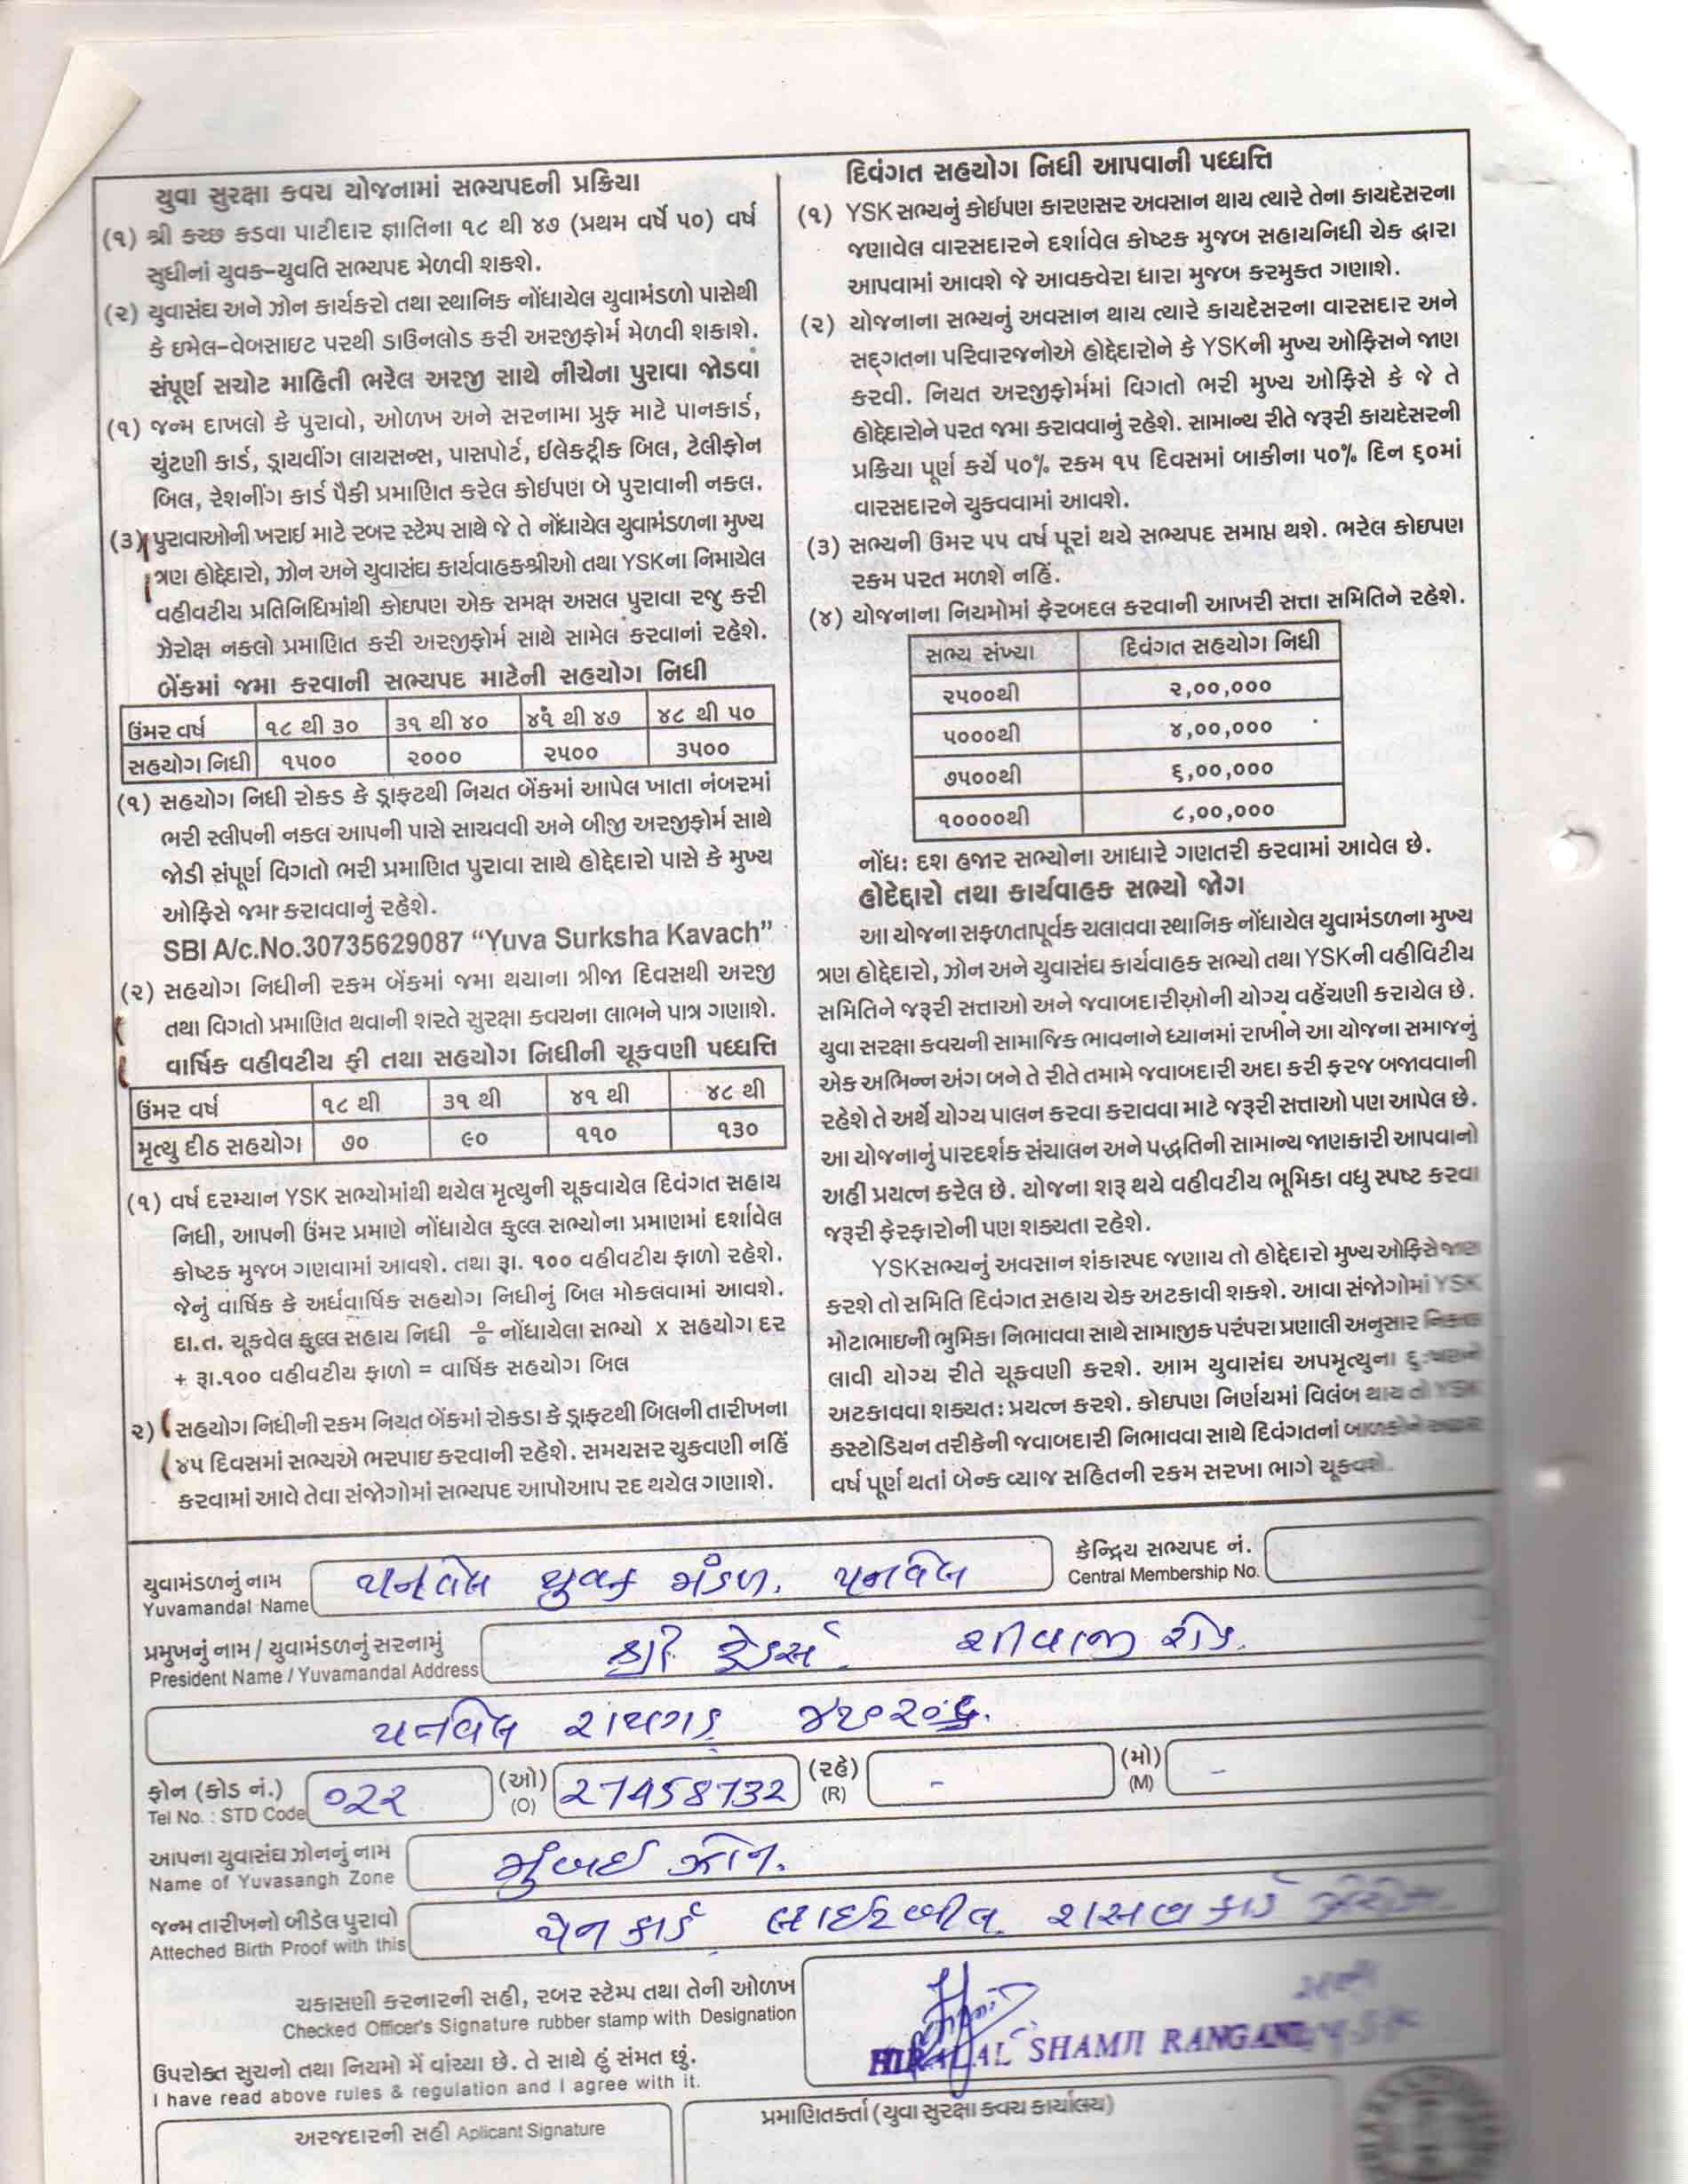 યુવા સુરક્ષા કવચ યોજનામાં સભ્યપદની પ્રક્રિયા
(૧) શ્રી કચ્છ કડવા પાટીદાર જ્ઞાતિના ૧૮ થી ૪૭ (પ્રથમ વર્ષે ૫૦) વર્ષ
સુધીનાં યુવક-યુવતિ સભ્યપદ મેળવી શકશે.
(૨) યુવાસંઘ અને ઝોન કાર્યકરો તથા સ્થાનિક નોંધાયેલ યુવામંડળો પાસેથી
કે ઇમેલ-વેબસાઇટ પરથી ડાઉનલોડ કરી અરજીફોર્મ મેળવી શકાશે.
સંપૂર્ણ સચોટ માહિતી ભરેલ અરજી સાથે નીચેના પુરાવા જોડવાં
(૧) જન્મ દાખલો કે પુરાવો, ઓળખ અને સરનામા પ્રુફ માટે પાનકાર્ડ,
ચુંટણી કાર્ડ, ડ્રાયવીંગ લાયસન્સ, પાસપોર્ટ, ઈલેક્ટ્રીક બિલ, ટેલીફોન
બિલ, રેશનીંગ કાર્ડ પૈકી પ્રમાણિત કરેલ કોઈપણ બે પુરાવાની નકલ.
(૩) પુરાવાઓની ખરાઈ માટે રબર સ્ટેમ્પ સાથે જે તે નોંધાયેલ યુવામંડળના મુખ્ય
ત્રણ હોદ્દેદારો, ઝોન અને યુવાસંઘ કાર્યવાહકશ્રીઓ તથા YSKના નિમાયેલ
વહીવટીય પ્રતિનિધિમાંથી કોઇપણ એક સમક્ષ અસલ પુરાવા રજુ કરી
ઝેરોક્ષ નકલો પ્રમાણિત કરી અરજીફોર્મ સાથે સામેલ કરવાનાં રહેશે.
બેંકમાં જમા કરવાની સભ્યપદ માટેની સહયોગ નિધી
ઉંમર વર્ષ ૧૮ થી ૩૦ ૩૧ થી ૪૦ ૪૧ થી ૪૭ ૪૮ થી ૫૦
સહયોગ નિધી ૧૫૦૦ ૨૦૦૦ ૨૫૦૦ ૩૫૦૦
(૧) સહયોગ નિધી રોકડ કે ડ્રાફ્ટથી નિયત બેંકમાં આપેલ ખાતા નંબરમાં
ભરી સ્લીપની નકલ આપની પાસે સાચવવી અને બીજી અરજીફોર્મ સાથે
જોડી સંપૂર્ણ વિગતો ભરી પ્રમાણિત પુરાવા સાથે હોદ્દેદારો પાસે કે મુખ્ય
ઓફિસે જમા કરાવવાનું રહેશે.
SBI A/c.No.30735629087 “Yuva Surksha Kavach”
(૨) સહયોગ નિધીની રકમ બેંકમાં જમા થયાના ત્રીજા દિવસથી અરજી
તથા વિગતો પ્રમાણિત થવાની શરતે સુરક્ષા કવચના લાભને પાત્ર ગણાશે.
વાર્ષિક વહીવટીય ફી તથા સહયોગ નિધીની ચૂકવણી પધ્ધત્તિ
ઉંમર વર્ષ ૧૮ થી ૩૧ થી ૪૧ થી ૪૮ થી
મૃત્યુ દીઠ સહયોગ ૭૦ ૯૦ ૧૧૦ ૧૩૦
(૧) વર્ષ દરમ્યાન YSK સભ્યોમાંથી થયેલ મૃત્યુની ચૂકવાયેલ દિવંગત સહાય
નિધી, આપની ઉંમર પ્રમાણે નોંધાયેલ કુલ્લ સભ્યોના પ્રમાણમાં દર્શાવેલ
કોષ્ટક મુજબ ગણવામાં આવશે. તથા રૂા. ૧૦૦ વહીવટીય ફાળો રહેશે.
જેનું વાર્ષિક કે અર્ધવાર્ષિક સહયોગ નિધીનું બિલ મોકલવામાં આવશે.
દા.ત. ચૂકવેલ કુલ્લ સહાય નિધી ÷ નોંધાયેલા સભ્યો x સહયોગ દર
+ રૂા.૧૦૦ વહીવટીય ફાળો = વાર્ષિક સહયોગ બિલ
૨) સહયોગ નિધીની રકમ નિયત બેંકમાં રોકડા કે ડ્રાફ્ટથી બિલની તારીખના
૪૫ દિવસમાં સભ્યએ ભરપાઇ કરવાની રહેશે. સમયસર ચુકવણી નહિં
કરવામાં આવે તેવા સંજોગોમાં સભ્યપદ આપોઆપ રદ થયેલ ગણાશે.
દિવંગત સહયોગ નિધી આપવાની પધ્ધત્તિ
(૧) YSK સભ્યનું કોઈપણ કારણસર અવસાન થાય ત્યારે તેના કાયદેસરના
જણાવેલ વારસદારને દર્શાવેલ કોષ્ટક મુજબ સહાયનિધી ચેક દ્વારા
આપવામાં આવશે જે આવકવેરા ધારા મુજબ કરમુક્ત ગણાશે.
(૨) યોજનાના સભ્યનું અવસાન થાય ત્યારે કાયદેસરના વારસદાર અને
સદ્ગતના પરિવારજનોએ હોદ્દેદારોને કે YSKની મુખ્ય ઓફિસને જાણ
કરવી. નિયત અરજીફોર્મમાં વિગતો ભરી મુખ્ય ઓફિસે કે જે તે
હોદ્દેદારોને પરત જમા કરાવવાનું રહેશે. સામાન્ય રીતે જરૂરી કાયદેસરની
પ્રક્રિયા પૂર્ણ કર્યે ૫૦% રકમ ૧૫ દિવસમાં બાકીના ૫૦% દિન ૬૦માં
વારસદારને ચુકવવામાં આવશે.
(૩) સભ્યની ઉમર ૫૫ વર્ષ પૂરાં થયે સભ્યપદ સમાપ્ત થશે. ભરેલ કોઇપણ
રકમ પરત મળશે નહિં.
(૪) યોજનાના નિયમોમાં ફેરબદલ કરવાની આખરી સત્તા સમિતિને રહેશે.
સભ્ય સંખ્યા દિવંગત સહયોગ નિધી
૨૫૦૦થી ૨,૦૦,૦૦૦
૫૦૦૦થી ૪,૦૦,૦૦૦
૭૫૦૦થી ૬,૦૦,૦૦૦
૧૦૦૦૦થી ૮,૦૦,૦૦૦
નોંધ: દશ હજાર સભ્યોના આધારે ગણતરી કરવામાં આવેલ છે.
હોદેદ્દારો તથા કાર્યવાહક સભ્યો જોગ
આ યોજના સફળતાપૂર્વક ચલાવવા સ્થાનિક નોંધાયેલ યુવામંડળના મુખ્ય
ત્રણ હોદ્દેદારો, ઝોન અને યુવાસંઘ કાર્યવાહક સભ્યો તથા YSKની વહીવિટીય
સમિતિને જરૂરી સત્તાઓ અને જવાબદારીઓની યોગ્ય વહેંચણી કરાયેલ છે.
યુવા સરક્ષા કવચની સામાજિક ભાવનાને ધ્યાનમાં રાખીને આ યોજના સમાજનું
એક અભિન્ન અંગ બને તે રીતે તમામે જવાબદારી અદા કરી ફરજ બજાવવાની
રહેશે તે અર્થે યોગ્ય પાલન કરવા કરાવવા માટે જરૂરી સત્તાઓ પણ આપેલ છે.
આ યોજનાનું પારદર્શક સંચાલન અને પદ્ધતિની સામાન્ય જાણકારી આપવાનો
અહીં પ્રયત્ન કરેલ છે. યોજના શરૂ થયે વહીવટીય ભૂમિકા વધુ સ્પષ્ટ કરવા
જરૂરી ફેરફારોની પણ શક્યતા રહેશે.
YSKસભ્યનું અવસાન શંકાસ્પદ જણાય તો હોદ્દેદારો મુખ્ય ઓફિસે જાણ
કરશે તો સમિતિ દિવંગત સહાય ચેક અટકાવી શકશે. આવા સંજોગોમાં YSK
મોટાભાઇની ભુમિકા નિભાવવા સાથે સામાજીક પરંપરા પ્રણાલી અનુસાર નિકાલ
લાવી યોગ્ય રીતે ચૂકવણી કરશે. આમ યુવાસંઘ અપમૃત્યુના
અટકાવવા શક્યત: પ્રયત્ન કરશે. કોઇપણ નિર્ણયમાં વિલંબ થાય તો YSK
કસ્ટોડિયન તરીકેની જવાબદારી નિભાવવા સાથે દિવંગતનાં બાળકોને
વર્ષ પૂર્ણ થતાં બેન્ક વ્યાજ સહિતની રકમ સરખા ભાગે ચૂકવશે.
યુવામંડળનું નામ પનવેલ યુવક મંડળ. પનવેલ કેન્દ્રિય સભ્યપદ નં.
Yuvamandal Name Central Membership No.
પ્રમુખનું નામ / યુવામંડળનું સરનામું શ્રી ટ્રેડર્સ. શીવાજી રોડ.
President Name / Yuvamandal Address
પનવેલ રાયગડ ૪૧૦૨૦૬.
ફોન (કોડ નં.) ૦૨૨ (ઓ) 27458732 (રહે) - (મો) -
Tel No. : STD Code (O) (R) (M)
આપના યુવાસંઘ ઝોનનું નામ મુંબઈ ઝોન.
Name of Yuvasangh Zone
જન્મ તારીખનો બીડેલ પુરાવો પેન કાર્ડ લાઈટબીલ
Atteched Birth Proof with this
ચકાસણી કરનારની સહી, રબર સ્ટેમ્પ તથા તેની ઓળખ
Checked Officer's Signature rubber stamp with Designation
HIRALAL SHAMJI RANGANI
ઉપરોક્ત સુચનો તથા નિયમો મેં વાંચ્યા છે. તે સાથે હું સંમત છું.
I have read above rules & regulation and I agree with it.
અરજદારની સહી Aplicant Signature
પ્રમાણિતકર્તા (યુવા સુરક્ષા કવચ કાર્યાલય)